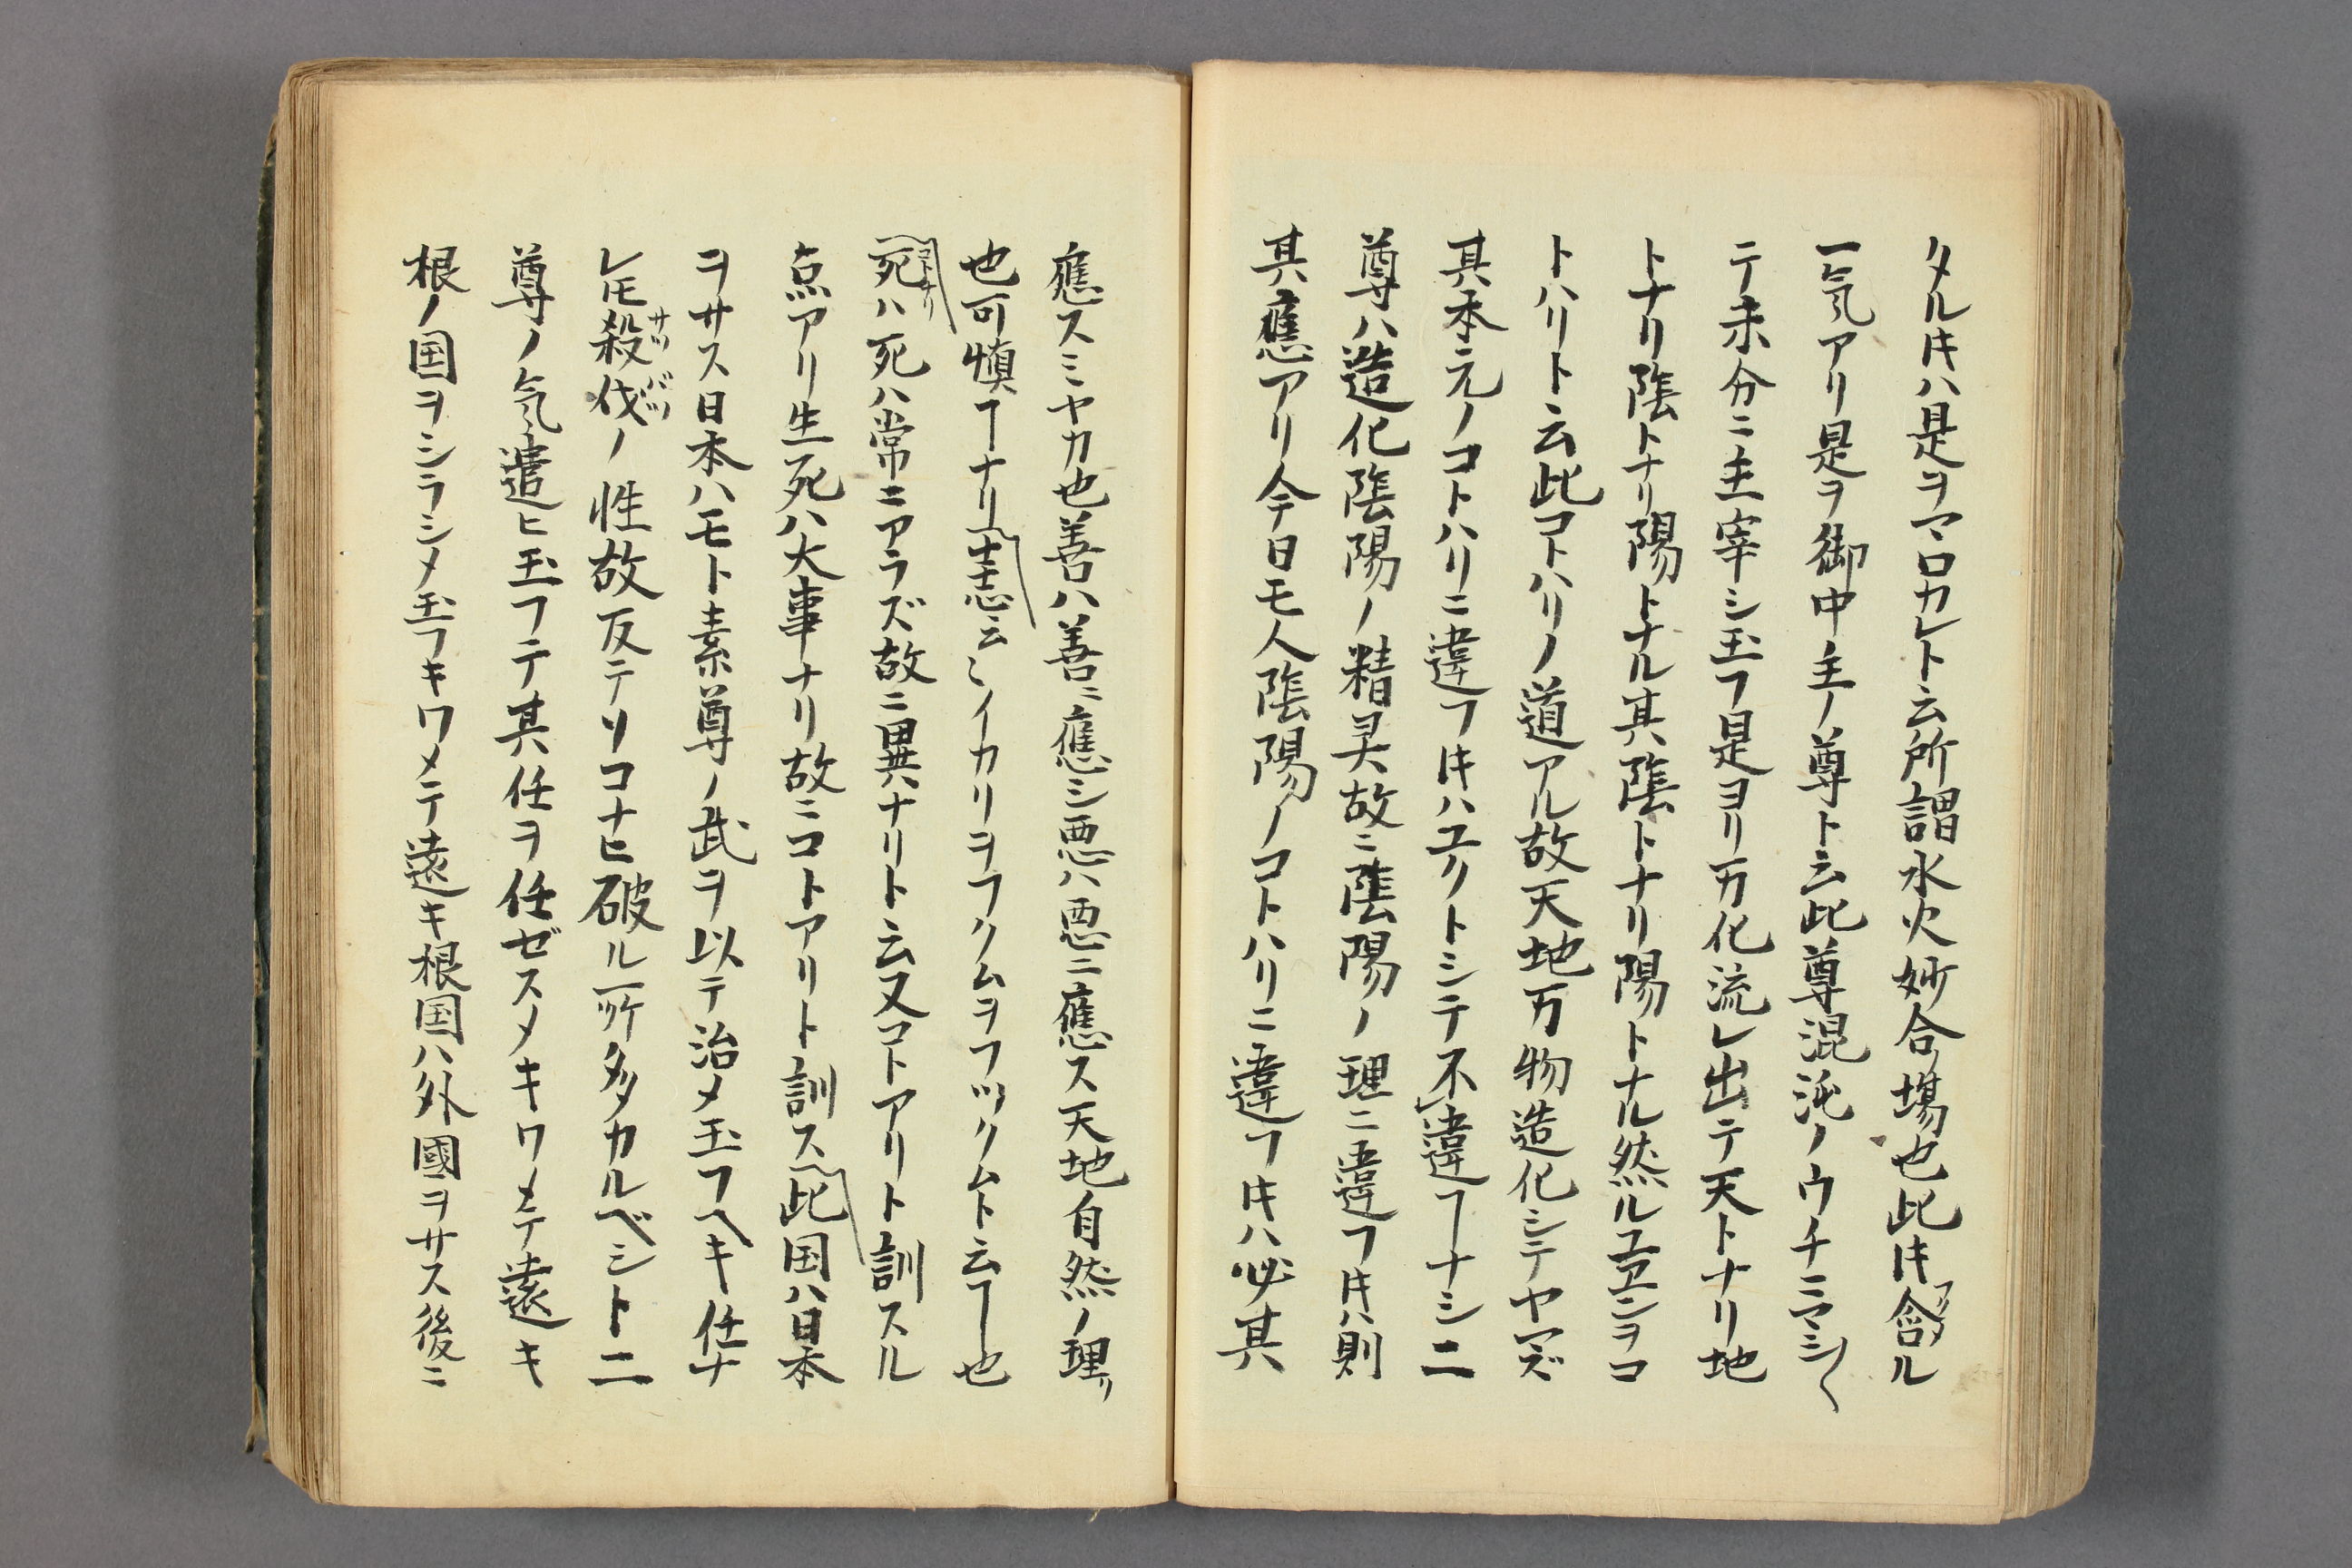 タル𪜈ハ是ヲマロカレト云所謂水火妙合ノ塲也此𪜈含ル
一気アリ是ヲ御中主ノ尊ト云此尊混沌ノウチニマシ〱
テ未分ニ主宰シ玉フ是ヨリ万化流レ出テ天トナリ地
トナリ陰トナリ陽トナル其陰トナリ陽トナル然ルユヱンヲコ
トハリト云此コトハリノ道アル故天地万物造化シテヤマズ
其本元ノコトハリニ違フ𪜈ハユクトシテ不違ヿナシ二
尊ハ造化陰陽ノ精灵故ニ陰陽ノ理ニ違フ𪜈ハ則
其應アリ今日モ人陰陽ノコトハリニ違フ𪜈ハ必其
應スミヤカ也善ハ善ニ應シ悪ハ悪ニ應ス天地自然ノ理リ
也可慎ヿナリ 恚云〻イカリヲフクムヲフツクムト云ヿ也
死ハ死ハ常ニアラズ故ニ異ナリト云又コトアリト訓スル
点アリ生死ハ大事ナリ故ニコトアリト訓ス 此国ハ日本
ヲサス日本ハモト素尊ノ武ヲ以テ治メ玉フヘキ任ナ
レ𪜈殺伐ノ性故反テソコナヒ破ル所多カルベシト二
尊ノ気遣ヒ玉フテ其任ヲ任ゼスメキワメテ遠キ
根ノ国ヲシラシメ玉フキワメテ遠キ根国ハ外國ヲサス後ニ